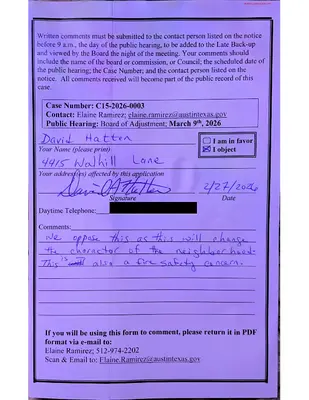 Written comments must be submitted to the contact person listed on the notice
before 9 a.m., the day of the public hearing, to be added to the Late Back-up
and viewed by the Board the night of the meeting. Your comments should
include the name of the board or commission, or Council; the scheduled date of
the public hearing; the Case Number; and the contact person listed on the
notice. All comments received will become part of the public record of this
case.
Case Number: C15-2026-0003
Contact: Elaine Ramirez; elaine.ramirez@austintexas.gov
Public Hearing: Board of Adjustment; March 9th, 2026
David Hatten
I am in favor
Your Name (please print)
I object
4415 Walhill Lane
Your address(es) affected by this application
David Hatten 2/27/2026
Signature Date
Daytime Telephone:
Comments:
We oppose this as this will change
the character of the neighborhood.
This is also a fire safety concern.
If you will be using this form to comment, please return it in PDF
format via e-mail to:
Elaine Ramirez; 512-974-2202
Scan & Email to: Elaine.Ramirez@austintexas.gov